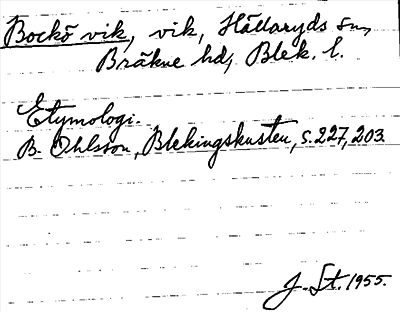 Bockö vik, vik, Hällaryds sn,
Bräkne hd, Blek. l.
Etymologi.
B. Ohlsson, Blekingskusten, s. 227, 203.
J. St. 1955.